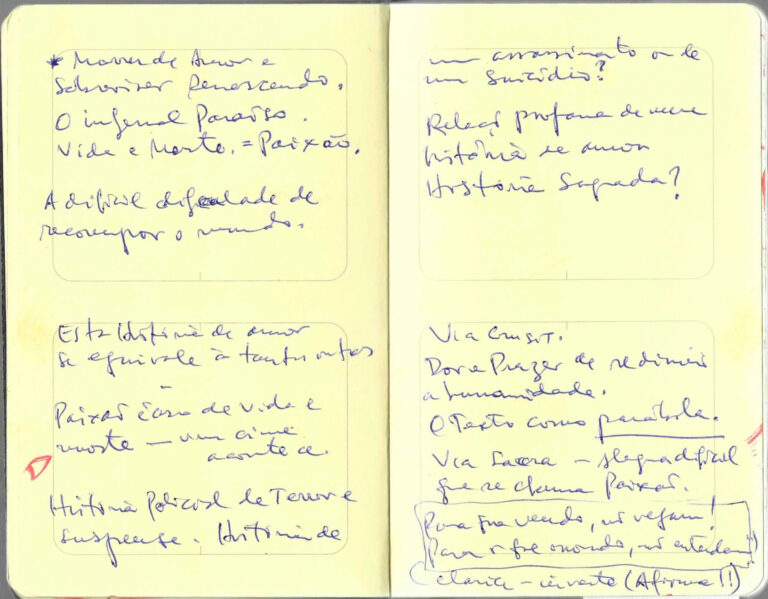 * Morrer de Amor e
sobreviver Renascendo.
O infernal Paraíso.
Vida e Morte. = Paixão.
A difícil dificuldade de
recompor o mundo.
Esta História de amor
se equivale à tantas outras
Paixão é caso de vida e
morte — um crime
acontece.
História Policial de Terror e
suspense. História de
um assassinato ou de
um suicídio?
Relação profana de uma
história de amor
História Sagrada?
Via Crucis.
Dor e Prazer de redimir
a humanidade.
O Texto como parábola.
Via Sacra — alegria difícil
que se chama Paixão.
Para que vendo, não vejam!
Para que ouvindo, não entendam!
(Clarice — inverte (Afirma!!)